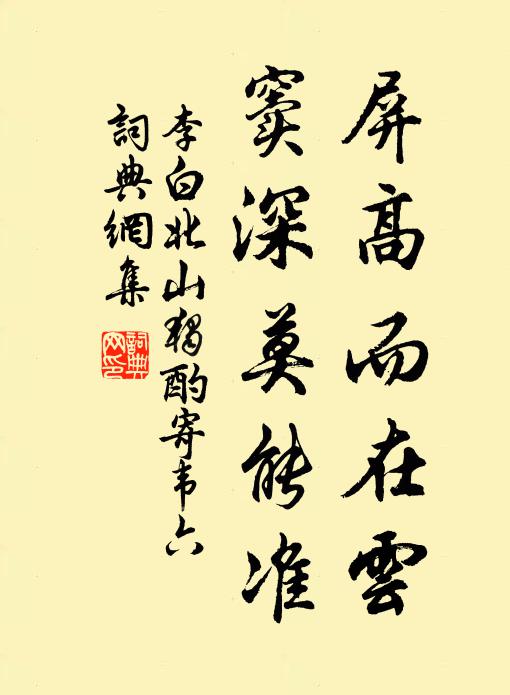 屏高而在雲
竇深莫能准
李白北山獨酌寄韦六
詞典網集
詞典
网印